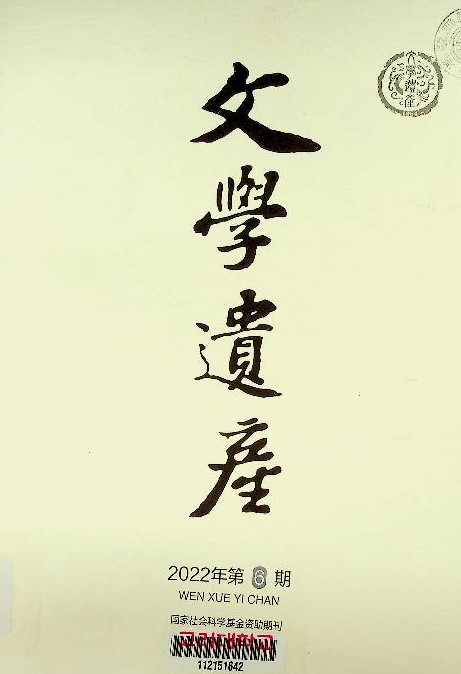 文學遺產
2022年第6期
WEN XUE YI CHAN
国家社会科学基金资助期刊
고려대학교
112151642